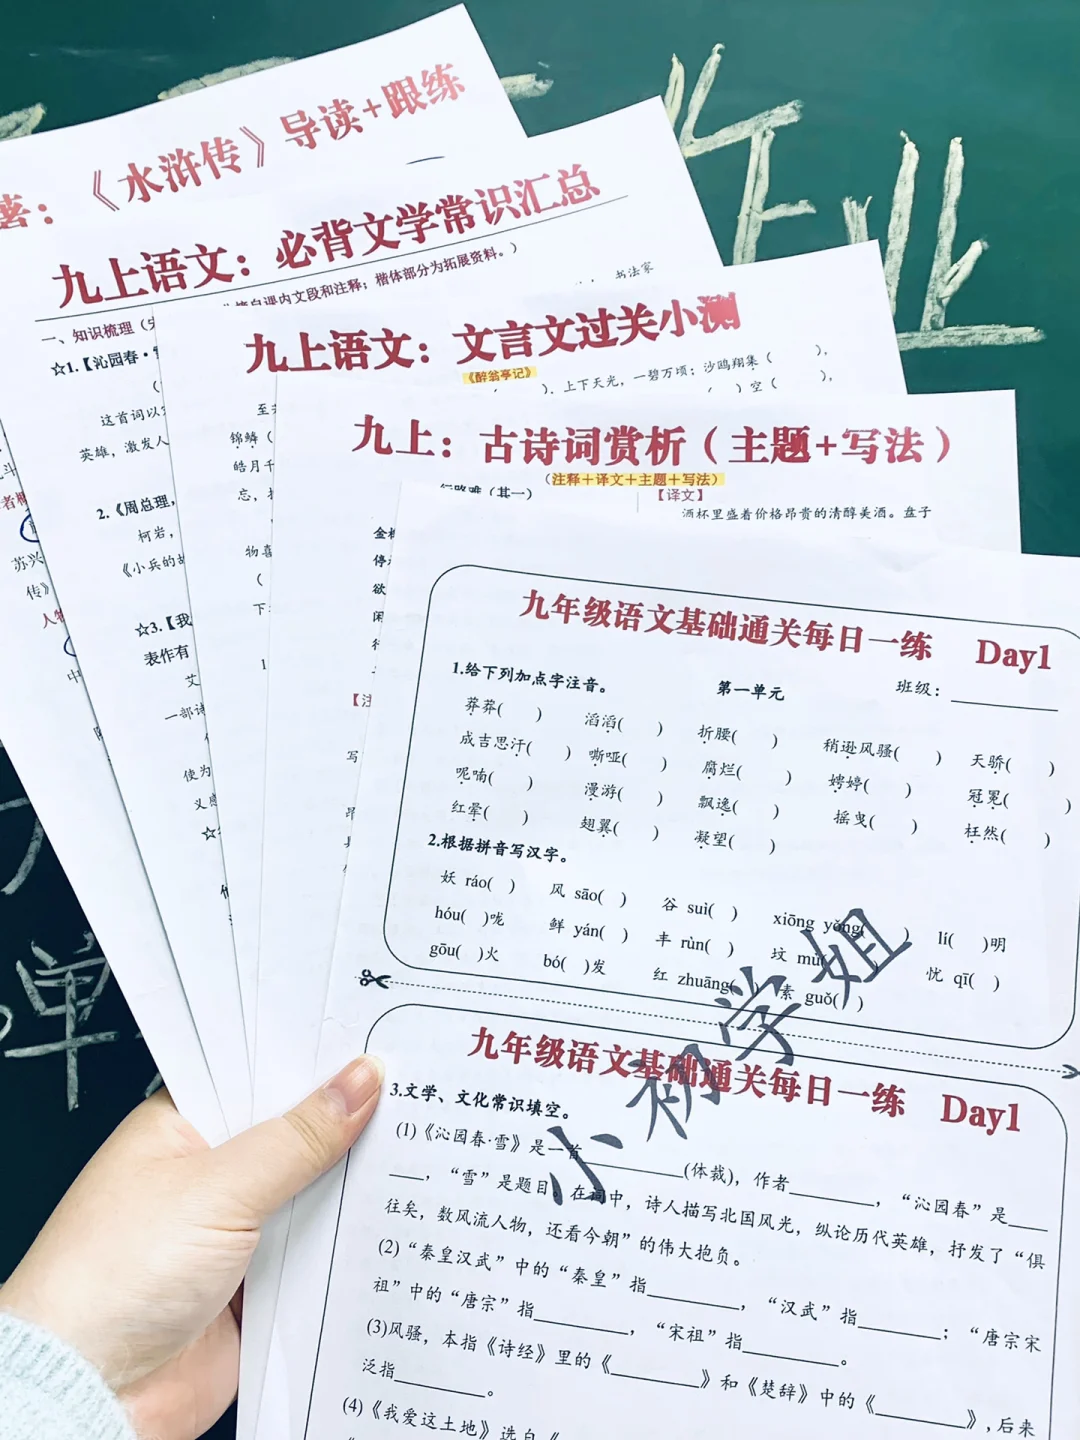 著：《水浒传》导读+跟练
九上语文：必背文学常识汇总
摘自课内文段和注释；楷体部分为拓展资料。）
一、知识梳理
☆1.【沁园春·
这首词以
英雄，激发人
2.《周总理，
柯岩，
《小兵的故
☆3.【我
表作有
艾
一部诗
使为
书法家
九上语文：文言文过关小测
《醉翁亭记》
上下天光，一碧万顷；沙鸥翔集（ ），
（ ）空（ ），
锦鳞（
皓月千
九上：古诗词赏析（主题+写法）
（注释+译文+主题+写法）
行路难（其一）
【译文】
酒杯里盛着价格昂贵的清醇美酒。盘子
九年级语文基础通关每日一练 Day1
1.给下列加点字注音。 第一单元 班级：
莽莽( ) 滔滔( ) 折腰( ) 稍逊风骚( ) 天骄( )
成吉思汗( ) 嘶哑( ) 腐烂( ) 娉婷( ) 冠冕( )
呢喃( ) 漫游( ) 飘逸( ) 摇曳( ) 枉然( )
红晕( ) 翅翼( ) 凝望( )
2.根据拼音写汉字。
妖 ráo( ) 风 sāo( ) 谷 suì( ) xiōng yǒng( ) lí( )明
hóu( )咙 鲜 yán( ) 丰 rùn( ) 坟 mù( ) 忧 qī( )
gōu( )火 bó( )发 红 zhuāng( ) 素 guǒ( )
九年级语文基础通关每日一练 Day1
3.文学、文化常识填空。
(1)《沁园春·雪》是一首________(体裁)，作者________，“沁园春”是____
____，“雪”是题目。在词中，诗人描写北国风光，纵论历代英雄，抒发了“俱
往矣，数风流人物，还看今朝”的伟大抱负。
(2)“秦皇汉武”中的“秦皇”指________，“汉武”指________；“唐宗宋
祖”中的“唐宗”指________，“宋祖”指________。
(3)风骚，本指《诗经》里的《________》和《楚辞》中的《________》,后来
泛指________。
(4)《我爱这土地》选自《
小初学姐